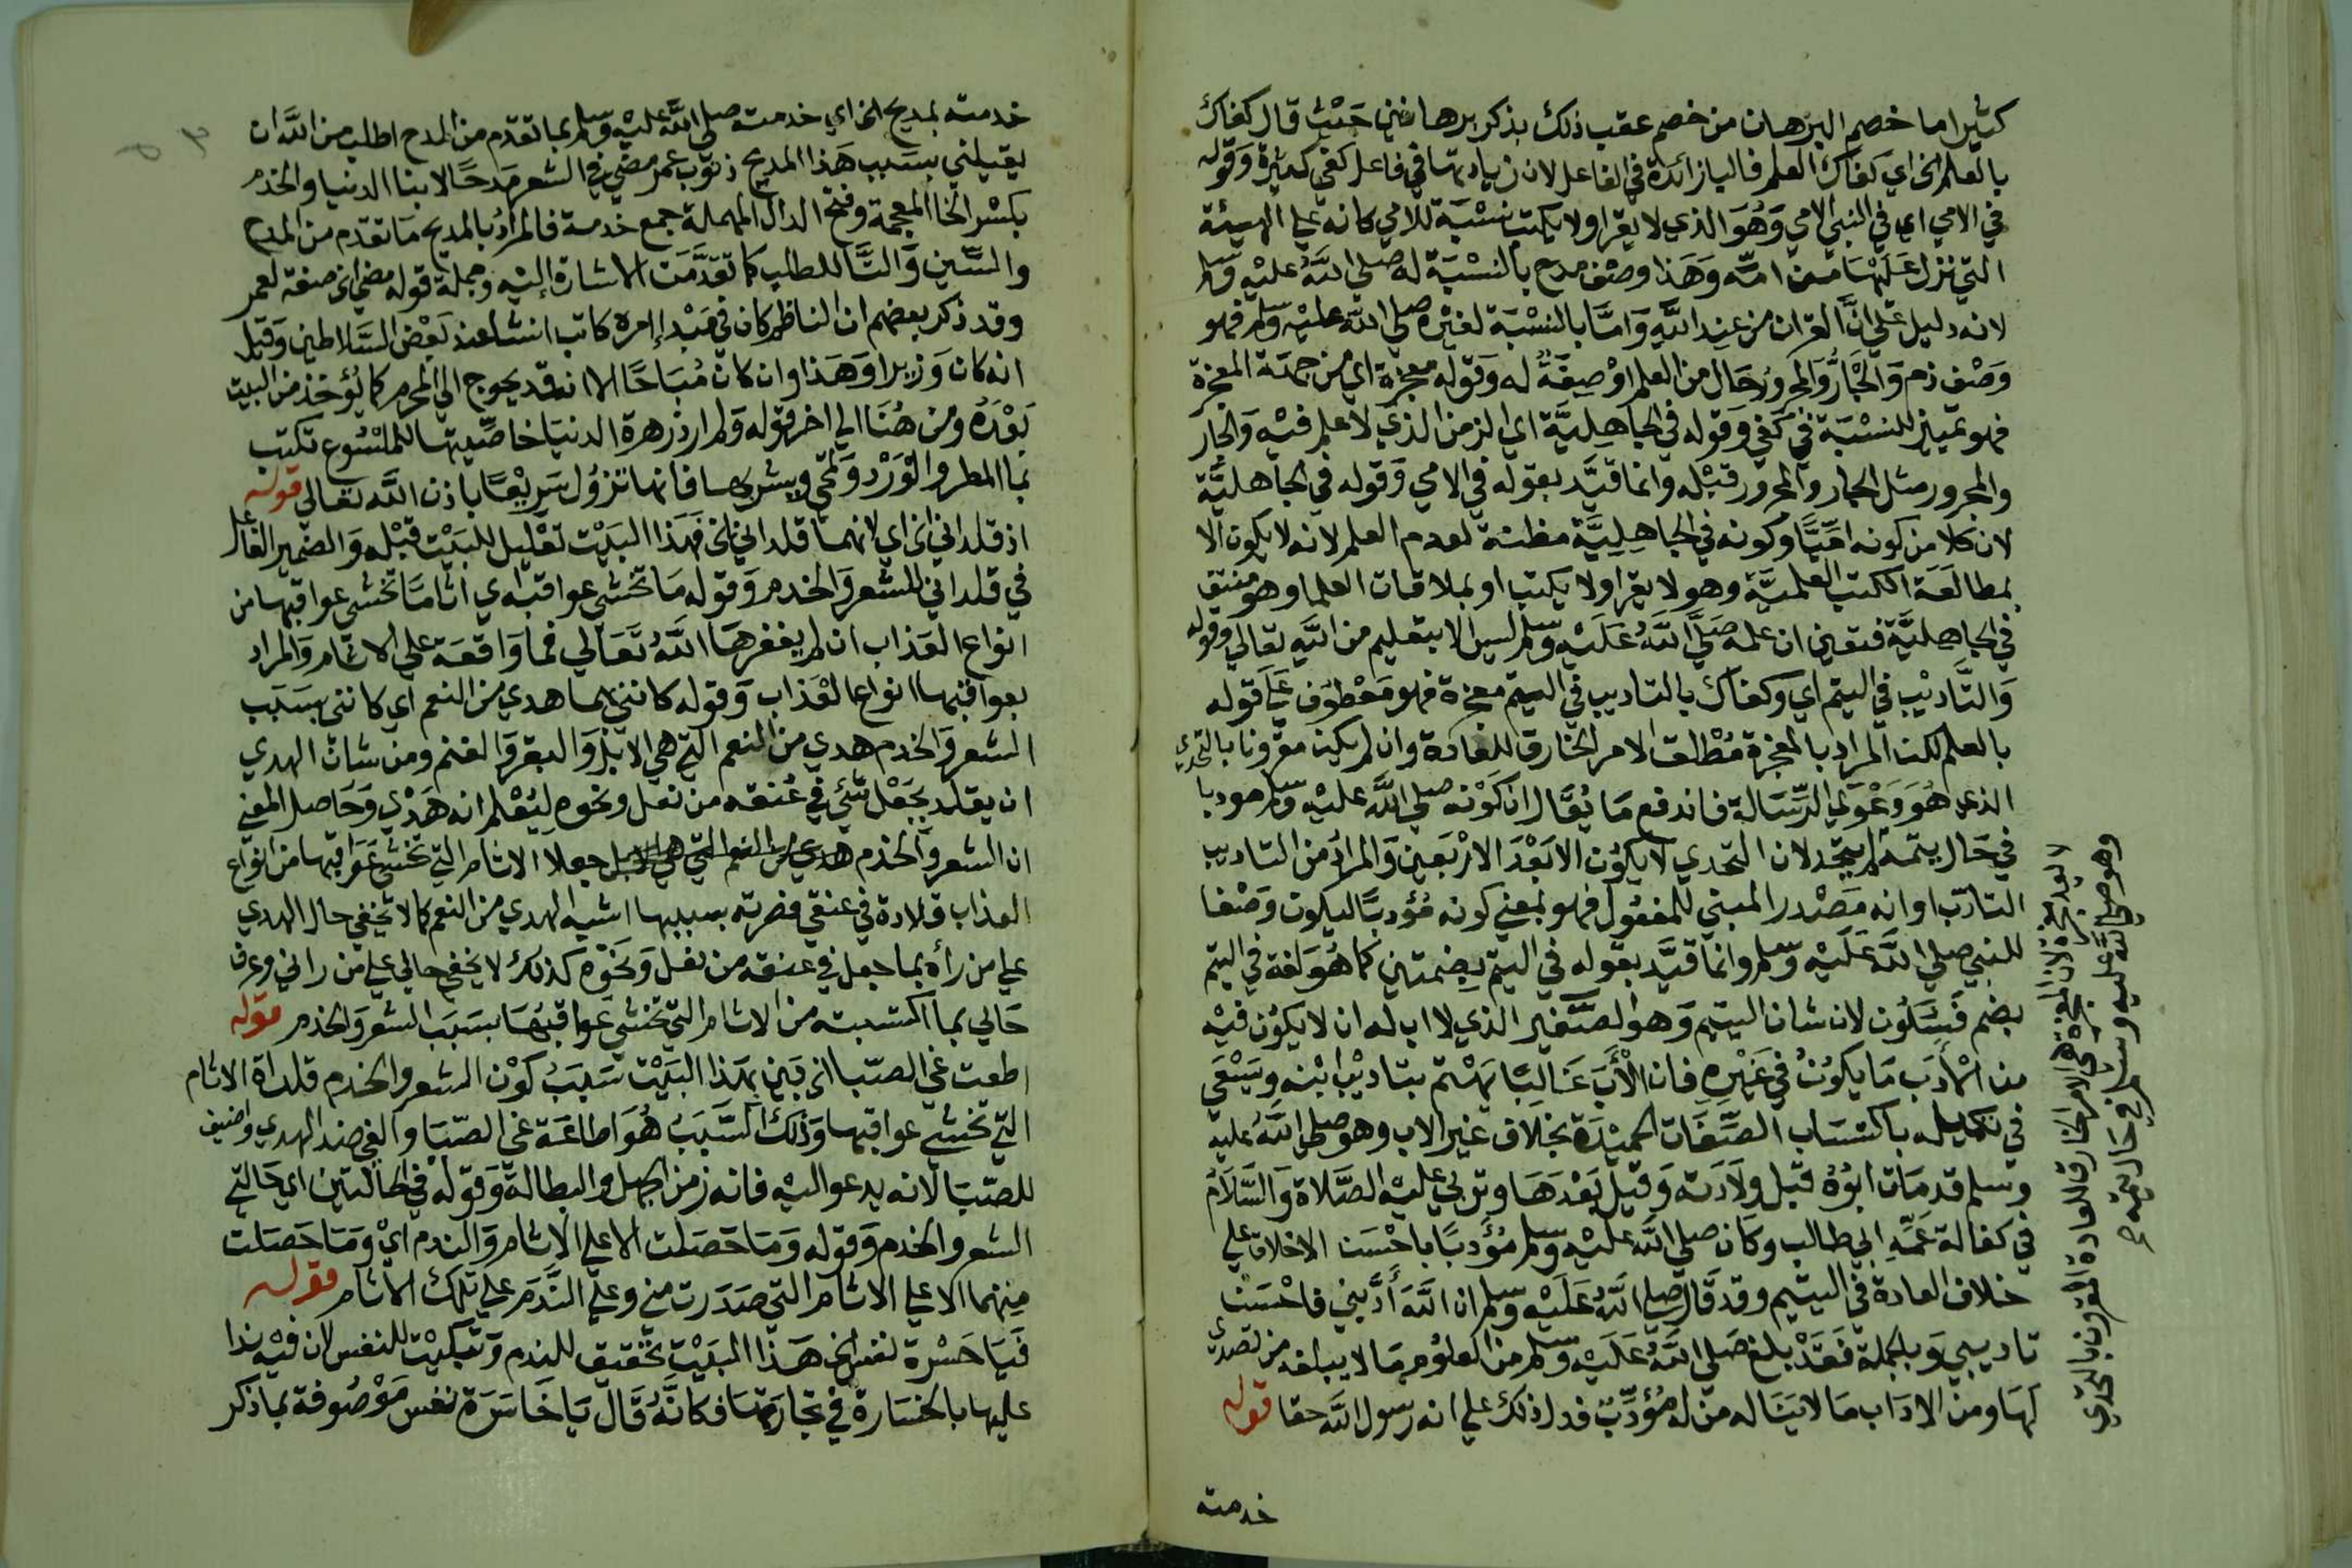 كثيرا ما خصم البرهان من خصم عقب ذلك بذكر برهانين حيث قال كفاك
بالعلم الخ اي كفاك العلم فالبا زائدة في الفاعل لان زيادتها في فاعل كفي كثيرة وقوله
في الامي اي في النبي الامي وهو الذي لا يقرا ولا يكتب نسبة للامي كانه علي الهيئة
التي نزل عليها من امه وهذا وصف مدح بالنسبة له صلي الله عليه وسلم
لانه دليل علي ان القران من عند الله واما بالنسبة لغيره صلي الله عليه وسلم فهو
وصف ذم والجار والمجرور حال من العلم او صفة له وقوله معجزة اي من جهة المعجزة
فهو تمييز للنسبة في كفي وقوله في الجاهلية اي الزمن الذي لا علم فيه والجار
والمجرور مثل الجار والمجرور قبله وانما قيد بقوله في الامي وقوله في الجاهلية
لان كلا من كونه اميا وكونه في الجاهلية مظنة لعدم العلم لانه لا يكون الا
بمطالعة الكتب العلمية وهو لا يقرا ولا يكتب او بملاقات العلما وهو منتف
في الجاهلية فتعين ان علمه صلي الله عليه وسلم ليس الا بتعليم من الله تعالي وقوله
والتاديب في اليتم اي وكفاك بالتاديب في اليتم معجزة فهو معطوف علي قوله
بالعلم لكن المراد بالمعجزة مطلق الامر الخارق للعادة وان لم يكن مقرونا بالتحدي
الذي هو دعوي الرسالة فاندفع ما يقال ان كونه صلي الله عليه وسلم مودبا
في حال يتمه لم يتحد لان التحدي لا يكون الا بعد الاربعين والمراد من التاديب
التادب او انه مصدر المبني للمفعول فهو بمعني كونه مؤدبا ليكون وصفا
للنبي صلي الله عليه وسلم وانما قيد بقوله في اليتم بضمتين كما هو لغة في اليتم
بضم فسكون لان شان اليتيم وهو الصغير الذي لا اب له ان لا يكون فيه
من الأدب ما يكون في غيره فان الأب غالبا يهتم بتاديب ابنه ويسعي
في تكميله باكتساب الصفات الحميدة بخلاف غير الاب وهو صلي الله عليه
وسلم قد مات ابوه قبل ولادته وقيل بعدها وتربي عليه الصلاة والسلام
في كفالة عمه ابي طالب وكان صلي الله عليه وسلم مؤدبا باحسن الاخلاق علي
خلاف العادة في اليتيم وقد قال صلي الله عليه وسلم ان الله أدبني فاحسن
تاديبي وبالجملة فقد بلغ صلي الله عليه وسلم من العلوم ما لا يبلغه من تصدي
لها ومن الاداب ما لا يناله من له مؤدب فدل ذلك علي انه رسول الله حقا قوله
خدمته
لا يعد معجزة لان المعجزة هي الامر الخارق للعادة المقرون بالتحدي
وهو صلي الله عليه وسلم في حال يتمه
خدمته بمديح الخ اي خدمته صلي الله عليه وسلم بما تقدم من المدح اطلب من الله ان
يقيلني بسبب هذا المديح ذنوب عمر مضي في الشعر مدحا لابنا الدنيا والخدم
بكسر الخا المعجمة وفتح الدال المهملة جمع خدمة فالمراد بالمديح ما تقدم من المدح
والسين والتا للطلب كما تقدمت الاشارة اليه وجملة قوله مضي الخ صفة لعمر
وقد ذكر بعضهم ان الناظم كان في مبدا امره كاتب انشا عند بعض السلاطين وقيل
انه كان وزيرا وهذا وان كان مباحا الا انه قد يحوج الي المحرم كما يؤخذ من البيت
بعده ومن هنا الي اخر قوله ولم ارد زهرة الدنيا خاصيتها للملسوع تكتب
بما المطر والورد وتمحي ويشربها فانها تزول سريعا باذن الله تعالي قوله
اذ قلداني الخ اي لانهما قلداني الخ فهذا البيت تعليل للبيت قبله والضمير الفاعل
في قلداني للشعر والخدم وقوله ما تخشي عواقبه اي اثاما تخشي عواقبها من
انواع العذاب ان لم يغفرها الله تعالي فما واقعة علي الاثام والمراد
بعواقبها انواع العذاب وقوله كانني بهما هدي من النعم اي كانني بسبب
الشعر والخدم هدي من النعم التي هي الابل والبقر والغنم ومن شان الهدي
ان يقلد بجعل شئ في عنقه من نعل ونحوه ليعلم انه هدي وحاصل المعني
ان الشعر والخدم هدي من النعم التي هي الابل جعلا الاثام التي تخشي عواقبها من انواع
العذاب قلادة في عنقي فصرت بسببها اشبه الهدي من النعم كما لا تخفي حال الهدي
علي من رأه بما جعل في عنقه من نعل ونحوه كذلك لا يخفي حالي علي من راني وعرف
حالي بما اكتسبته من الاثام التي تخشي عواقبها بسبب الشعر والخدم قوله
اطعت غي الصبا الخ بين بهذا البيت سبب كون الشعر والخدم قلداه الاثام
التي تخشي عواقبها وذلك السبب هو اطاعة غي الصبا والغي ضد الهدي واضيف
للصبا لانه يدعو اليه فانه زمن الجهل والبطالة وقوله في الحالتين اي حالتي
الشعر والخدم وقوله وما حصلت الا علي الاثام والندم اي وما حصلت
منهما الا علي الاثام التي صدرت مني وعلي الندم علي تلك الاثام قوله
فيا حسرة نفس الخ هذا البيت تحقيق للندم وتبكيت للنفس لان فيه ندا
عليها بالخسارة في تجارتها فكانه قال يا خاسرة نفس موصوفة بما ذكر